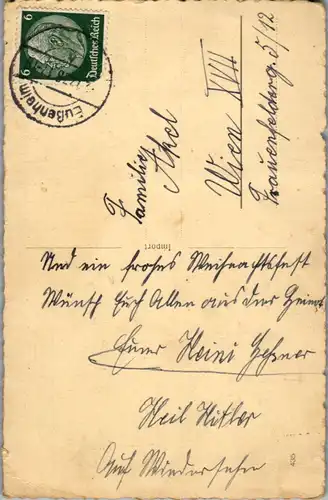 6
Deutsches Reich
6
Eußenheim
Familie
Abel
Wien XVII
Frauenfelderg. 5/12
Import
Und ein frohes Weihnachtsfest
Wünsch Euch Allen aus der Heimat
Euer Heini
Heil Hitler
Auf Wiedersehn